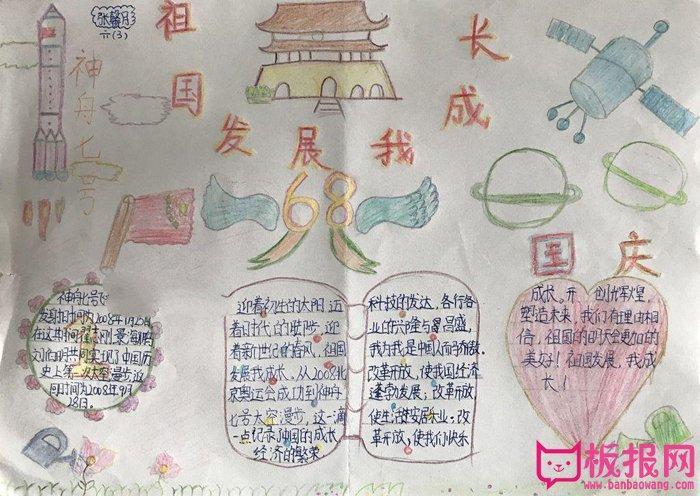 张馨月
六(3)
祖国发展我成长
神舟七号
68
国庆
神舟七号飞
发射时间为2008年9月25日
在这其间翟志刚景海鹏
刘伯明共同实现了中国历
史上第一次太空漫步,返
回时间为2008年9月
28日。
迎着初生的太阳,迈
着时代的脚步,迎
着新世纪的春风,祖国
发展我成长。从2008北
京奥运会成功到神舟
七号太空漫步,这一滴
一点记录了中国的成长
经济的繁荣
科技的发达,各行各
业的兴隆与昌盛,
我为我是中国人而骄傲。
改革开放,使我国经济
蓬勃发展;改革开放
使生活安居乐业;改
革开放,使我们快乐
成长,开创辉煌,
塑造未来,我们有理由相
信,祖国的明天会更加的
美好!祖国发展,我成
长!
板报网
www.banbaowang.com